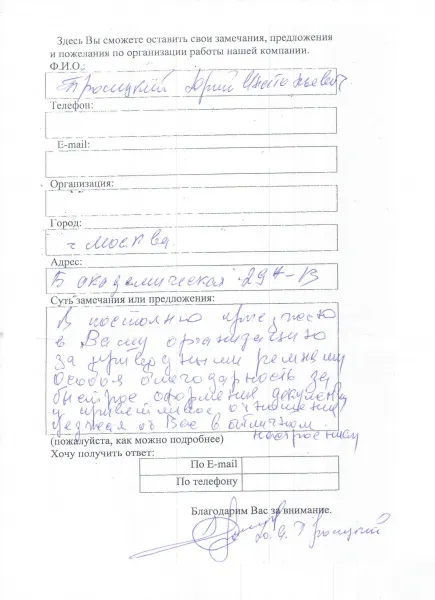 Здесь Вы сможете оставить свои замечания, предложения
и пожелания по организации работы нашей компании.
Ф.И.О.:
Троицкий Юрий
Телефон:
E-mail:
Организация:
Город:
г Москва
Адрес:
Б академическая 29А-В
Суть замечания или предложения:
Я постоянно приезжаю
в Вашу организацию
за приводными ремнями
Особоя благодарность за
быстрое оформления документ
у приветливое отношение
уезжая от Вас в отличном
настроении
(пожалуйста, как можно подробнее)
Хочу получить ответ:
По E-mail
По телефону
Благодарим Вас за внимание.
Ю. А. Троицкий